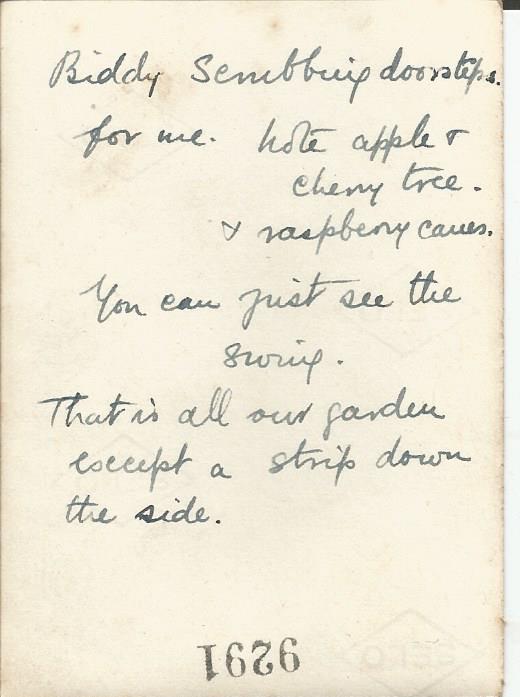 Biddy Scrubbing doorsteps.
for me. Note apple &
cherry tree.
& raspberry canes.
You can just see the
swing.
That is all our garden
except a strip down
the side.
9291
SELO